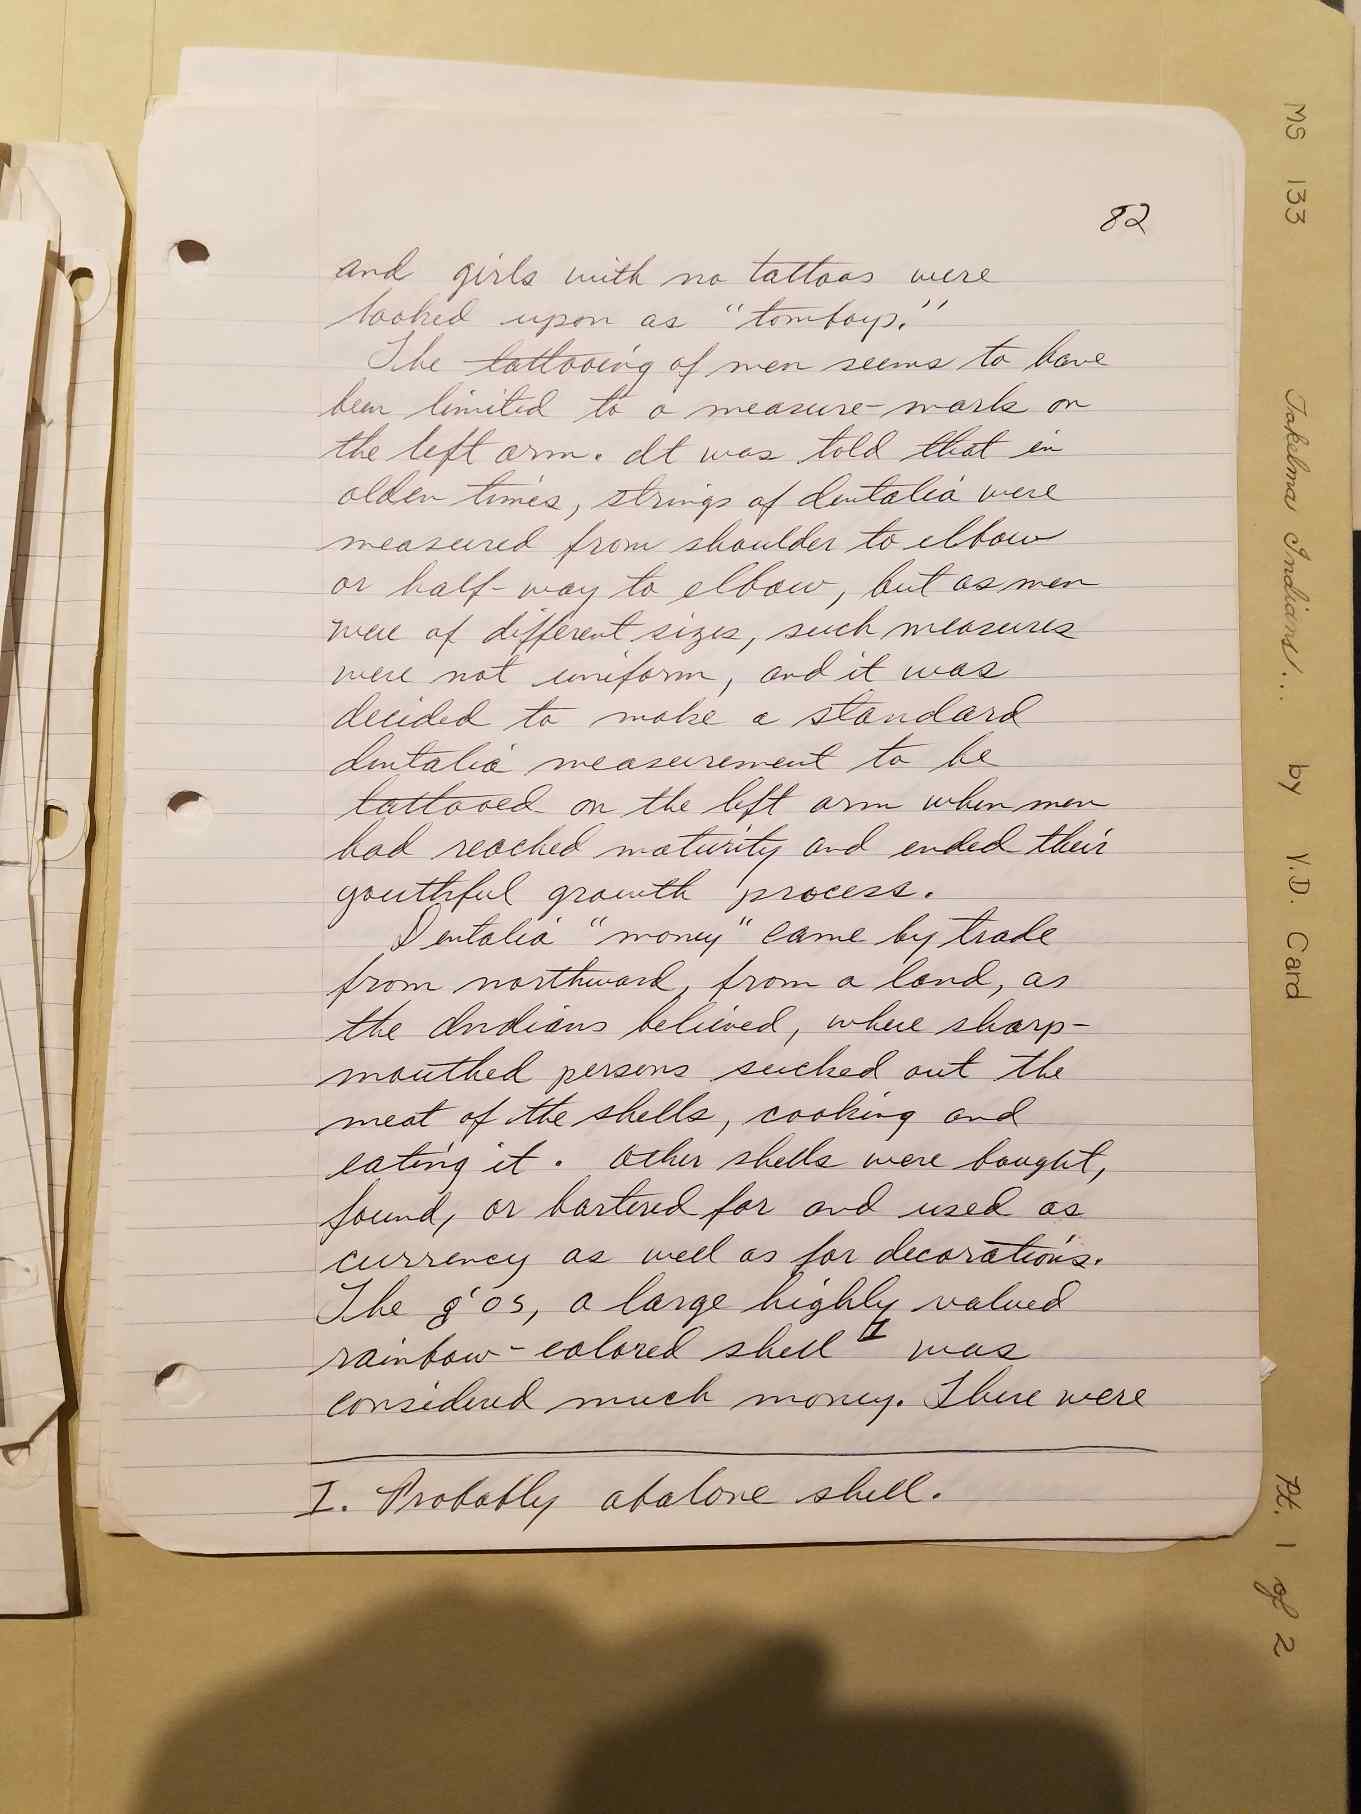 82
and girls with no tattoos were
looked upon as "tomboys."
The tattooing of men seems to have
been limited to a measure-mark on
the left arm. It was told that in
olden times, strings of dentalia were
measured from shoulder to elbow
or half-way to elbow, but as men
were of different sizes, such measures
were not uniform, and it was
decided to make a standard
dentalia measurement to be
tattooed on the left arm when men
had reached maturity and ended their
youthful growth process.
Dentalia "money" came by trade
from northward, from a land, as
the Indians believed, where sharp-
mouthed persons sucked out the
meat of the shells, cooking and
eating it. Other shells were bought,
found, or bartered for and used as
currency as well as for decorations.
The g'os, a large highly valued
rainbow-colored shell I was
considered much money. There were
I. Probably abalone shell.
MS 133 Takelma Indians... by V.D. Card Pt. 1 of 2